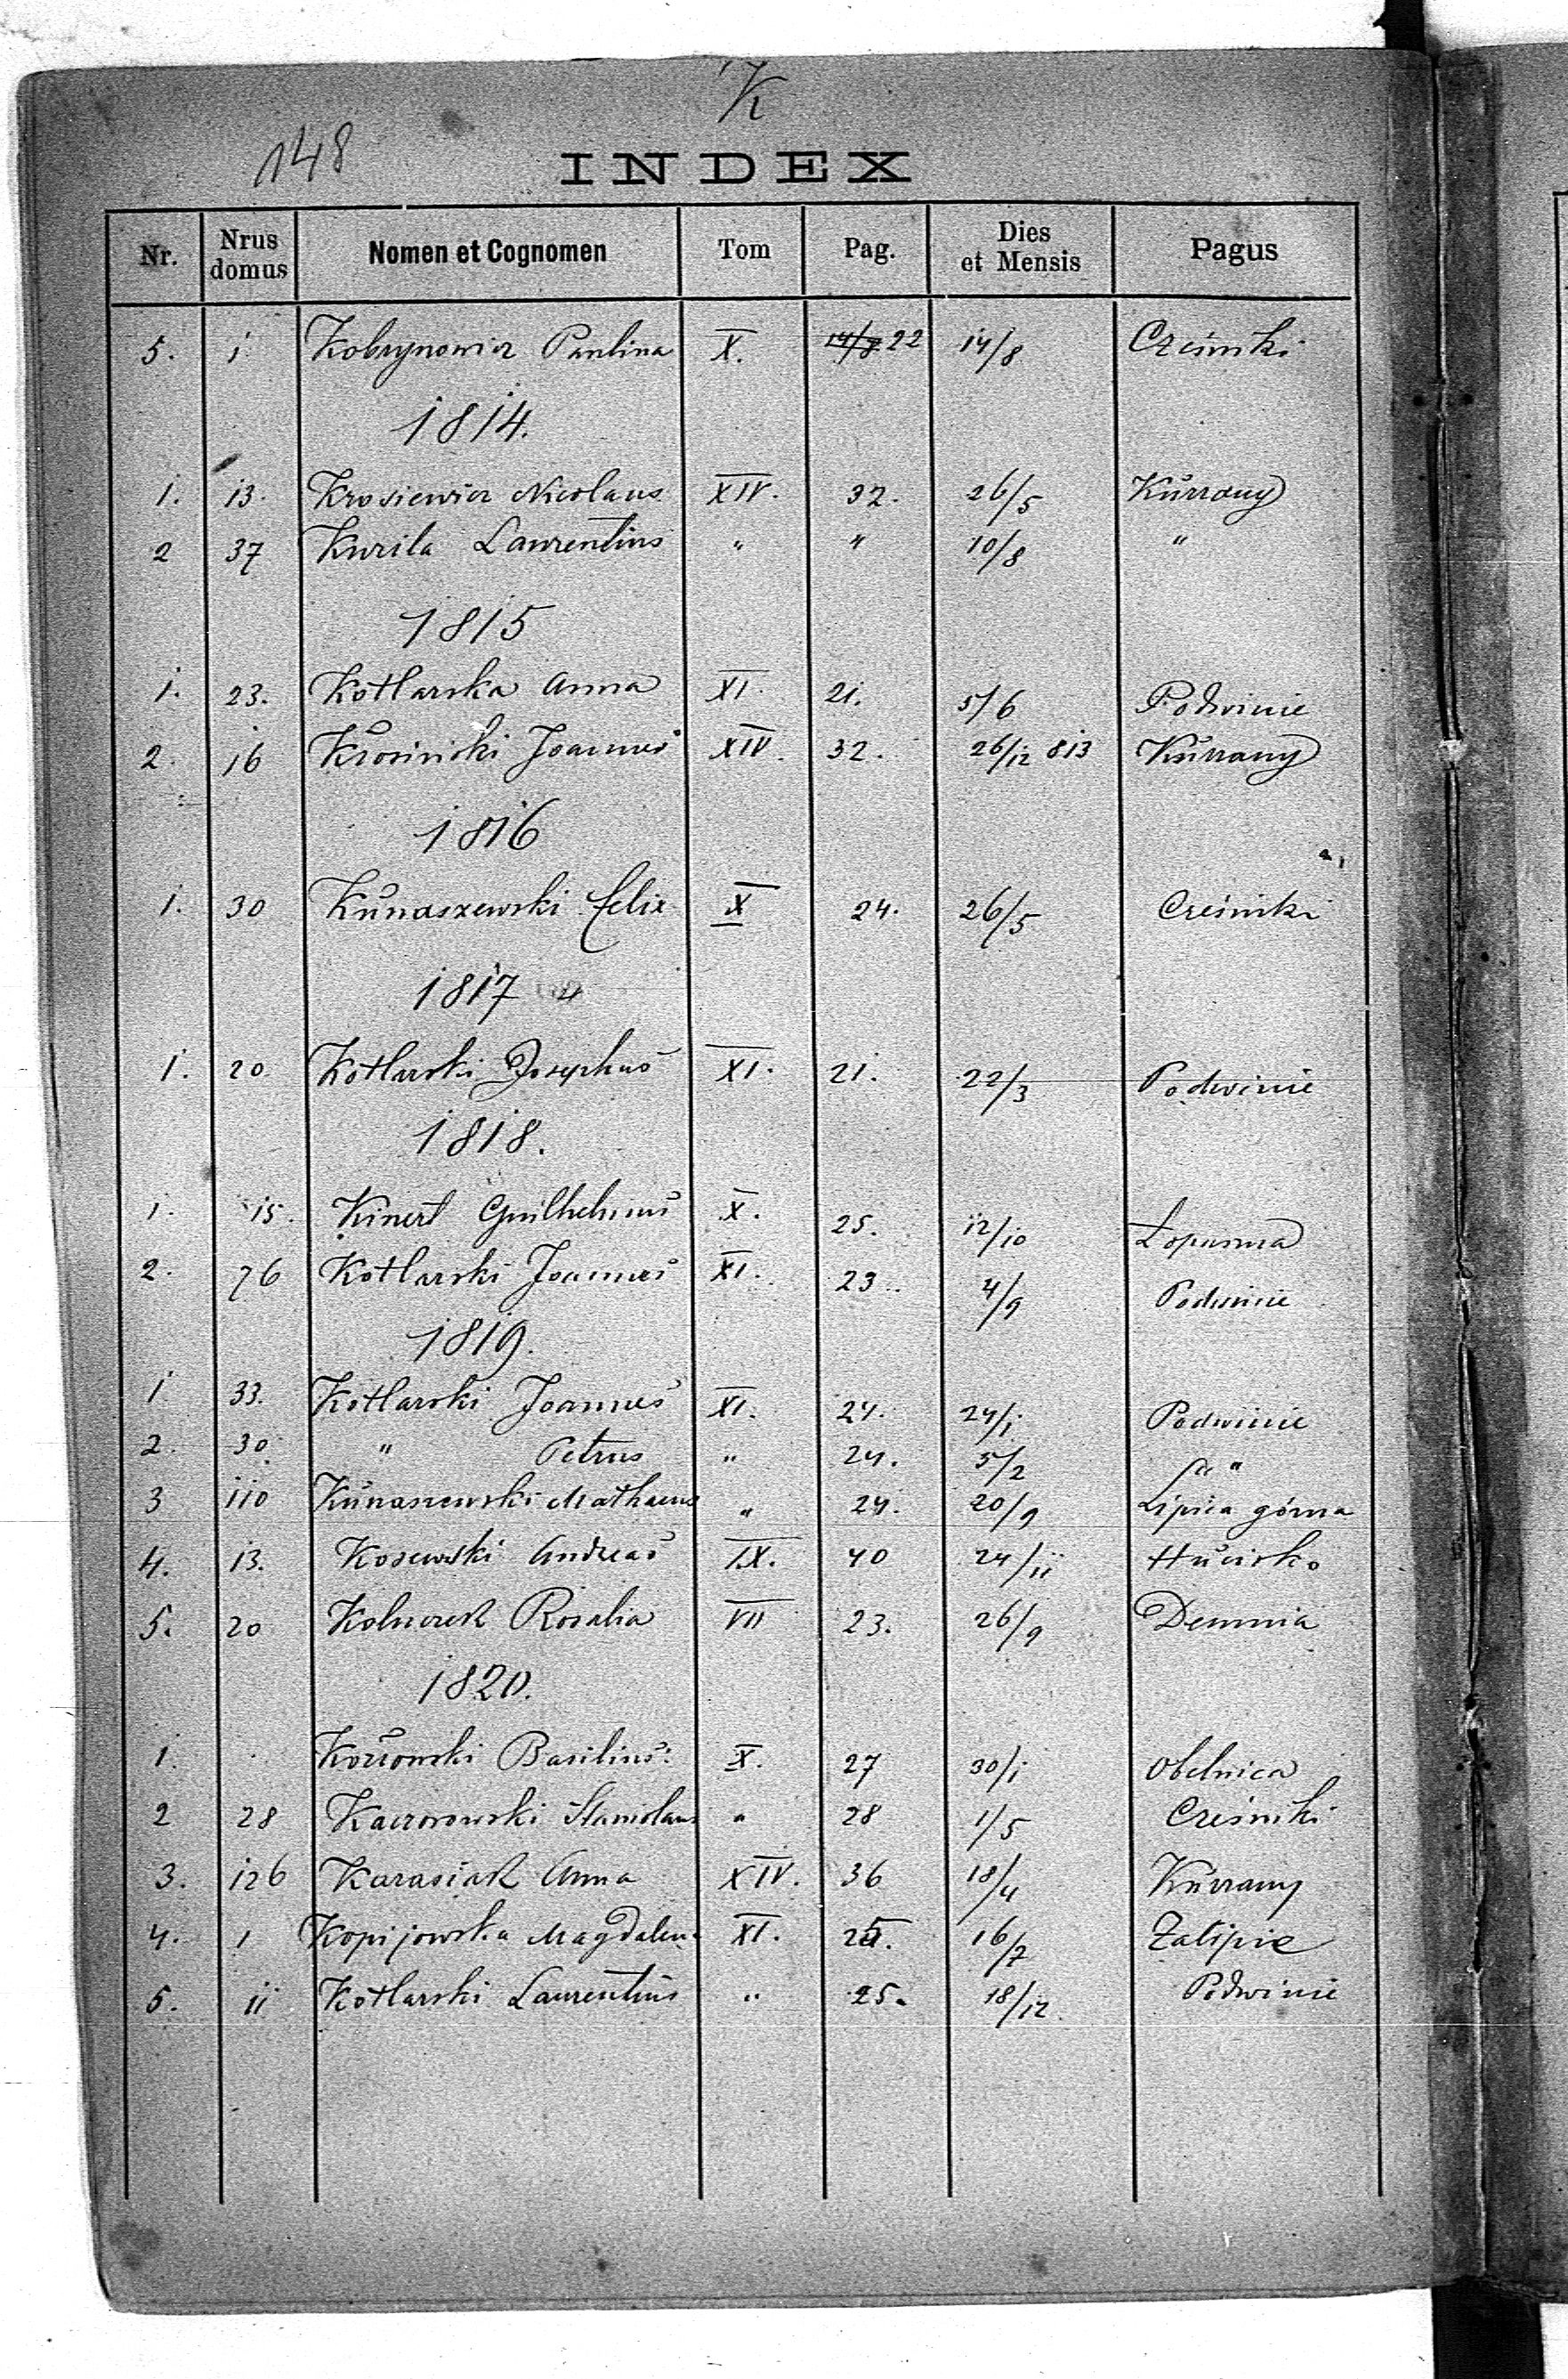 K
148
INDEX
Nr. Nrus domus Nomen et Cognomen Tom Pag. Dies et Mensis Pagus
5. 1 Kobrynowicz Paulina X. 14/8 22 14/8 Cześniki
1814.
1. 13. Krosiewicz Nicolaus XIV. 32. 26/5 Kurzany
2 37 Kurila Laurentius " " 10/8 "
1815
1. 23. Kotlarska Anna XI. 21. 5/6 Podwinie
2. 16 Krosinski Joannes XIV. 32. 26/12 813 Kurzany
1816
1. 30 Kunaszewski Felix X 24. 26/5 Cześniki
1817
1. 20 Kotlarski Josephus XI. 21. 22/3 Podwinie
1818.
1. 15. Kinert Guilhelmus X. 25. 12/10 Łopuszna
2. 76 Kotlarski Joannes XI. 23. 4/9 Podwinie
1819.
1 33. Kotlarski Joannes XI. 24. 24/1 Podwinie
2. 30 " Petrus " 24. 5/2 "
3 110 Kunaszewski Mathaeus " 24. 20/9 Lipica górna
4. 13. Kosewski Andreas IX. 40 24/11 Hucisko
5. 20 Rosalia VII 23. 26/9 Demnia
1820.
1. Kozłowski Basilius: X. 27 30/1 Obelnica
2 28 Kaczorowski Stanislaus " 28 1/5 Cześniki
3. 126 Karasiak Anna XIV. 36 18/4 Kurzany
4. 1 Kopijowska Magdalena XI. 25. 16/7 Zalipie
5. 11 Kotlarski Laurentius " 25. 18/12 Podwinie